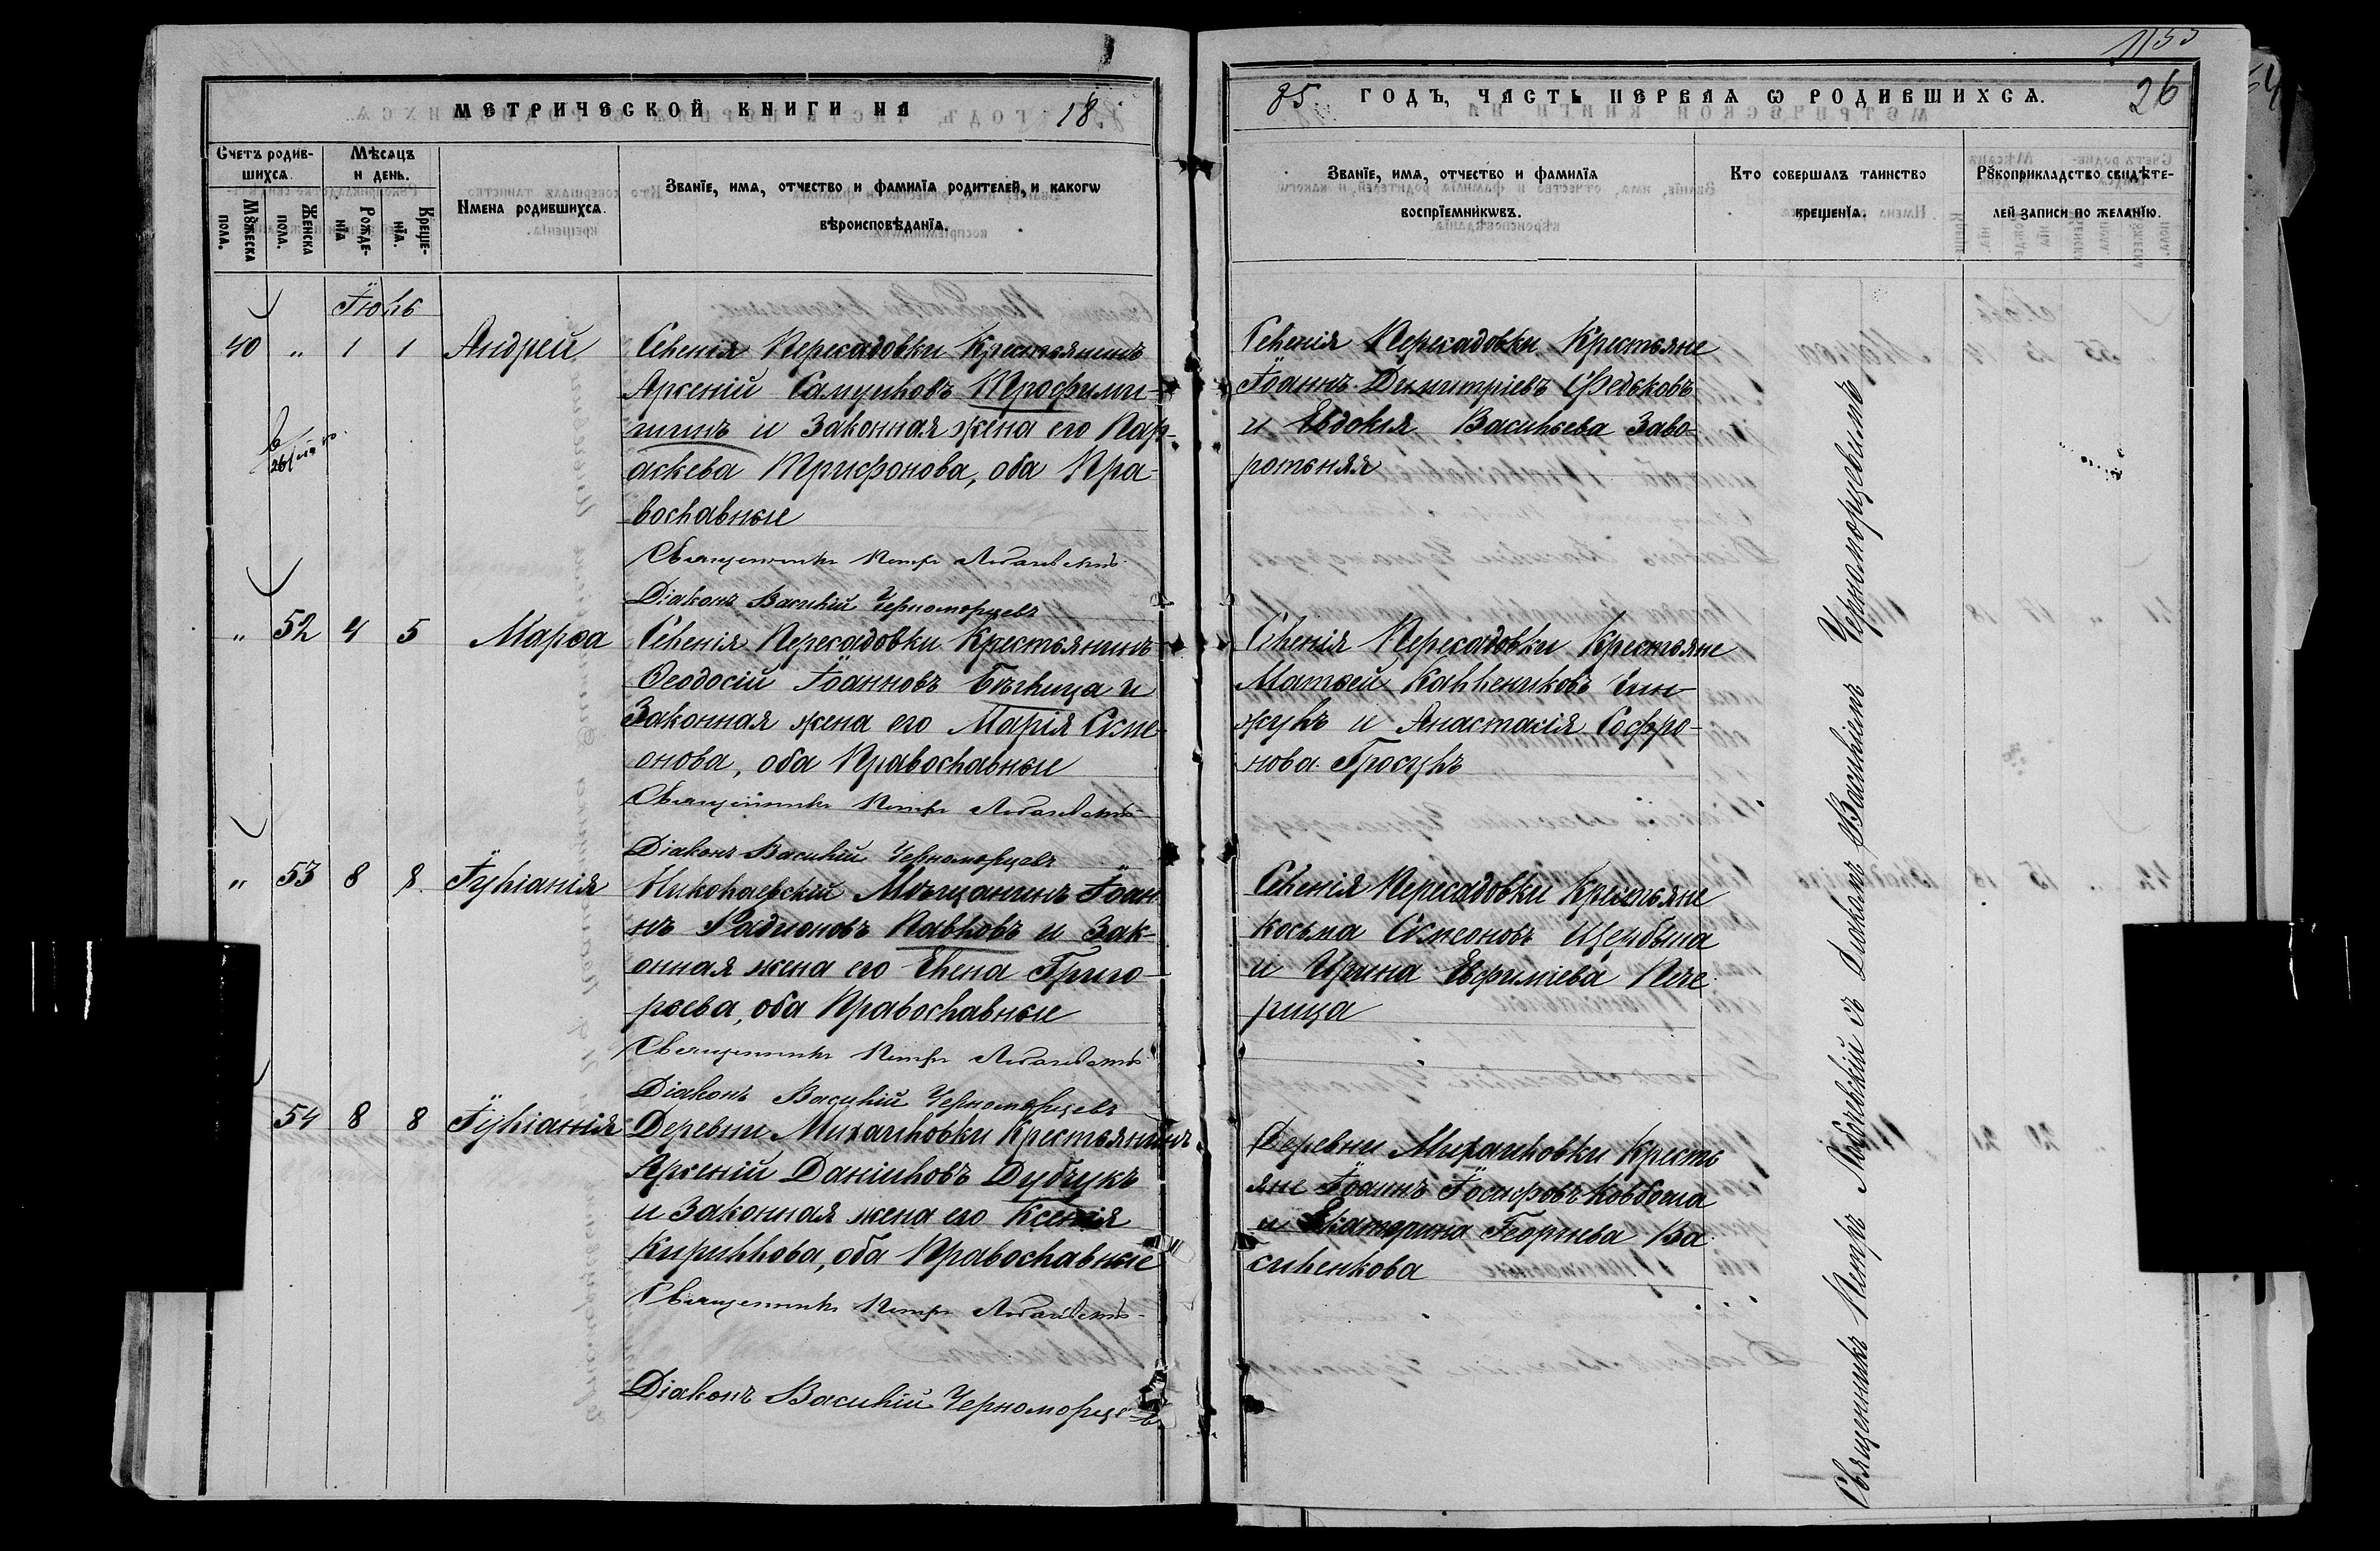 1153
МЕТРИЧЕСКОЙ КНИГИ НА 18
85 ГОДЪ, ЧАСТЬ ПЕРВАЯ Ѡ РОДИВШИХСѦ. 26
Счетъ родив-
шихсѧ.
Мѣсѧцъ
и день.
Мꙋжеска
пола.
Женска
пола.
Рожде-
нїѧ
Креще-
нїѧ.
Имена родившихсѧ.
Званїе, имѧ, отчество и фамилїѧ родителей, и какогѡ
вѣроисповѣданїѧ.
Званїе, имѧ, отчество и фамилїѧ
воспрїемникѡвъ.
Кто совершалъ таинство
крещенїѧ.
Рꙋкоприкладство свидѣте-
лей записи по желанїю.
Іюль
40 " 1 1 Андрей
Селенія Пересадовки Крестьянинъ
Арсеній Самуиловъ Трофими-
шинъ и Законная жена его Пар-
аскева Трифонова, оба Пра-
вославные
Священникъ Петръ
Діаконъ Василій Черноморцевъ
Селенія Пересадовки Крестьяне
Іоаннъ Димитріевъ Федьковъ
и Евдокія Васильева Заво-
ротьняя
" 52 4 5 Марѳа
Селенія Пересадовки Крестьянинъ
Ѳеодосій Іоанновъ Бѣглица и
Законная жена его Марія Симе-
онова, оба Православные
Священникъ Петръ
Діаконъ Василій Черноморцевъ
Селенія Пересадовки Крестьяне
Матѳей Каллениковъ Гин-
жулъ и Анастасія Софро-
нова Гросулъ
" 53 8 8 Іуліанія
Николаевскій Мѣщанинъ Іоан
нъ Радионовъ Павловъ и Зак-
онная жена его Елена Григо-
рьева, оба Православные
Священникъ Петръ
Діаконъ Василій Черноморцевъ
Селенія Пересадовки Крестьяне
Косьма Симеоновъ Щербына
и Ирина Евфиміева Пече
рица
54 8 8 Іуліанія
Деревни Михаиловки Крестьянинъ
Арсеній Даніиловъ Дубчукъ
и Законная жена его Ксенія
Кириллова, оба Православные
Священникъ Петръ
Діаконъ Василій Черноморцевъ
Деревни Михаиловки Кресть
яне Іоаннъ Іосифовъ Ковбаша
и Екатерина Георгиева Ва
силенкова
Священникъ Петръ съ Діакономъ Василіемъ Черноморцевымъ